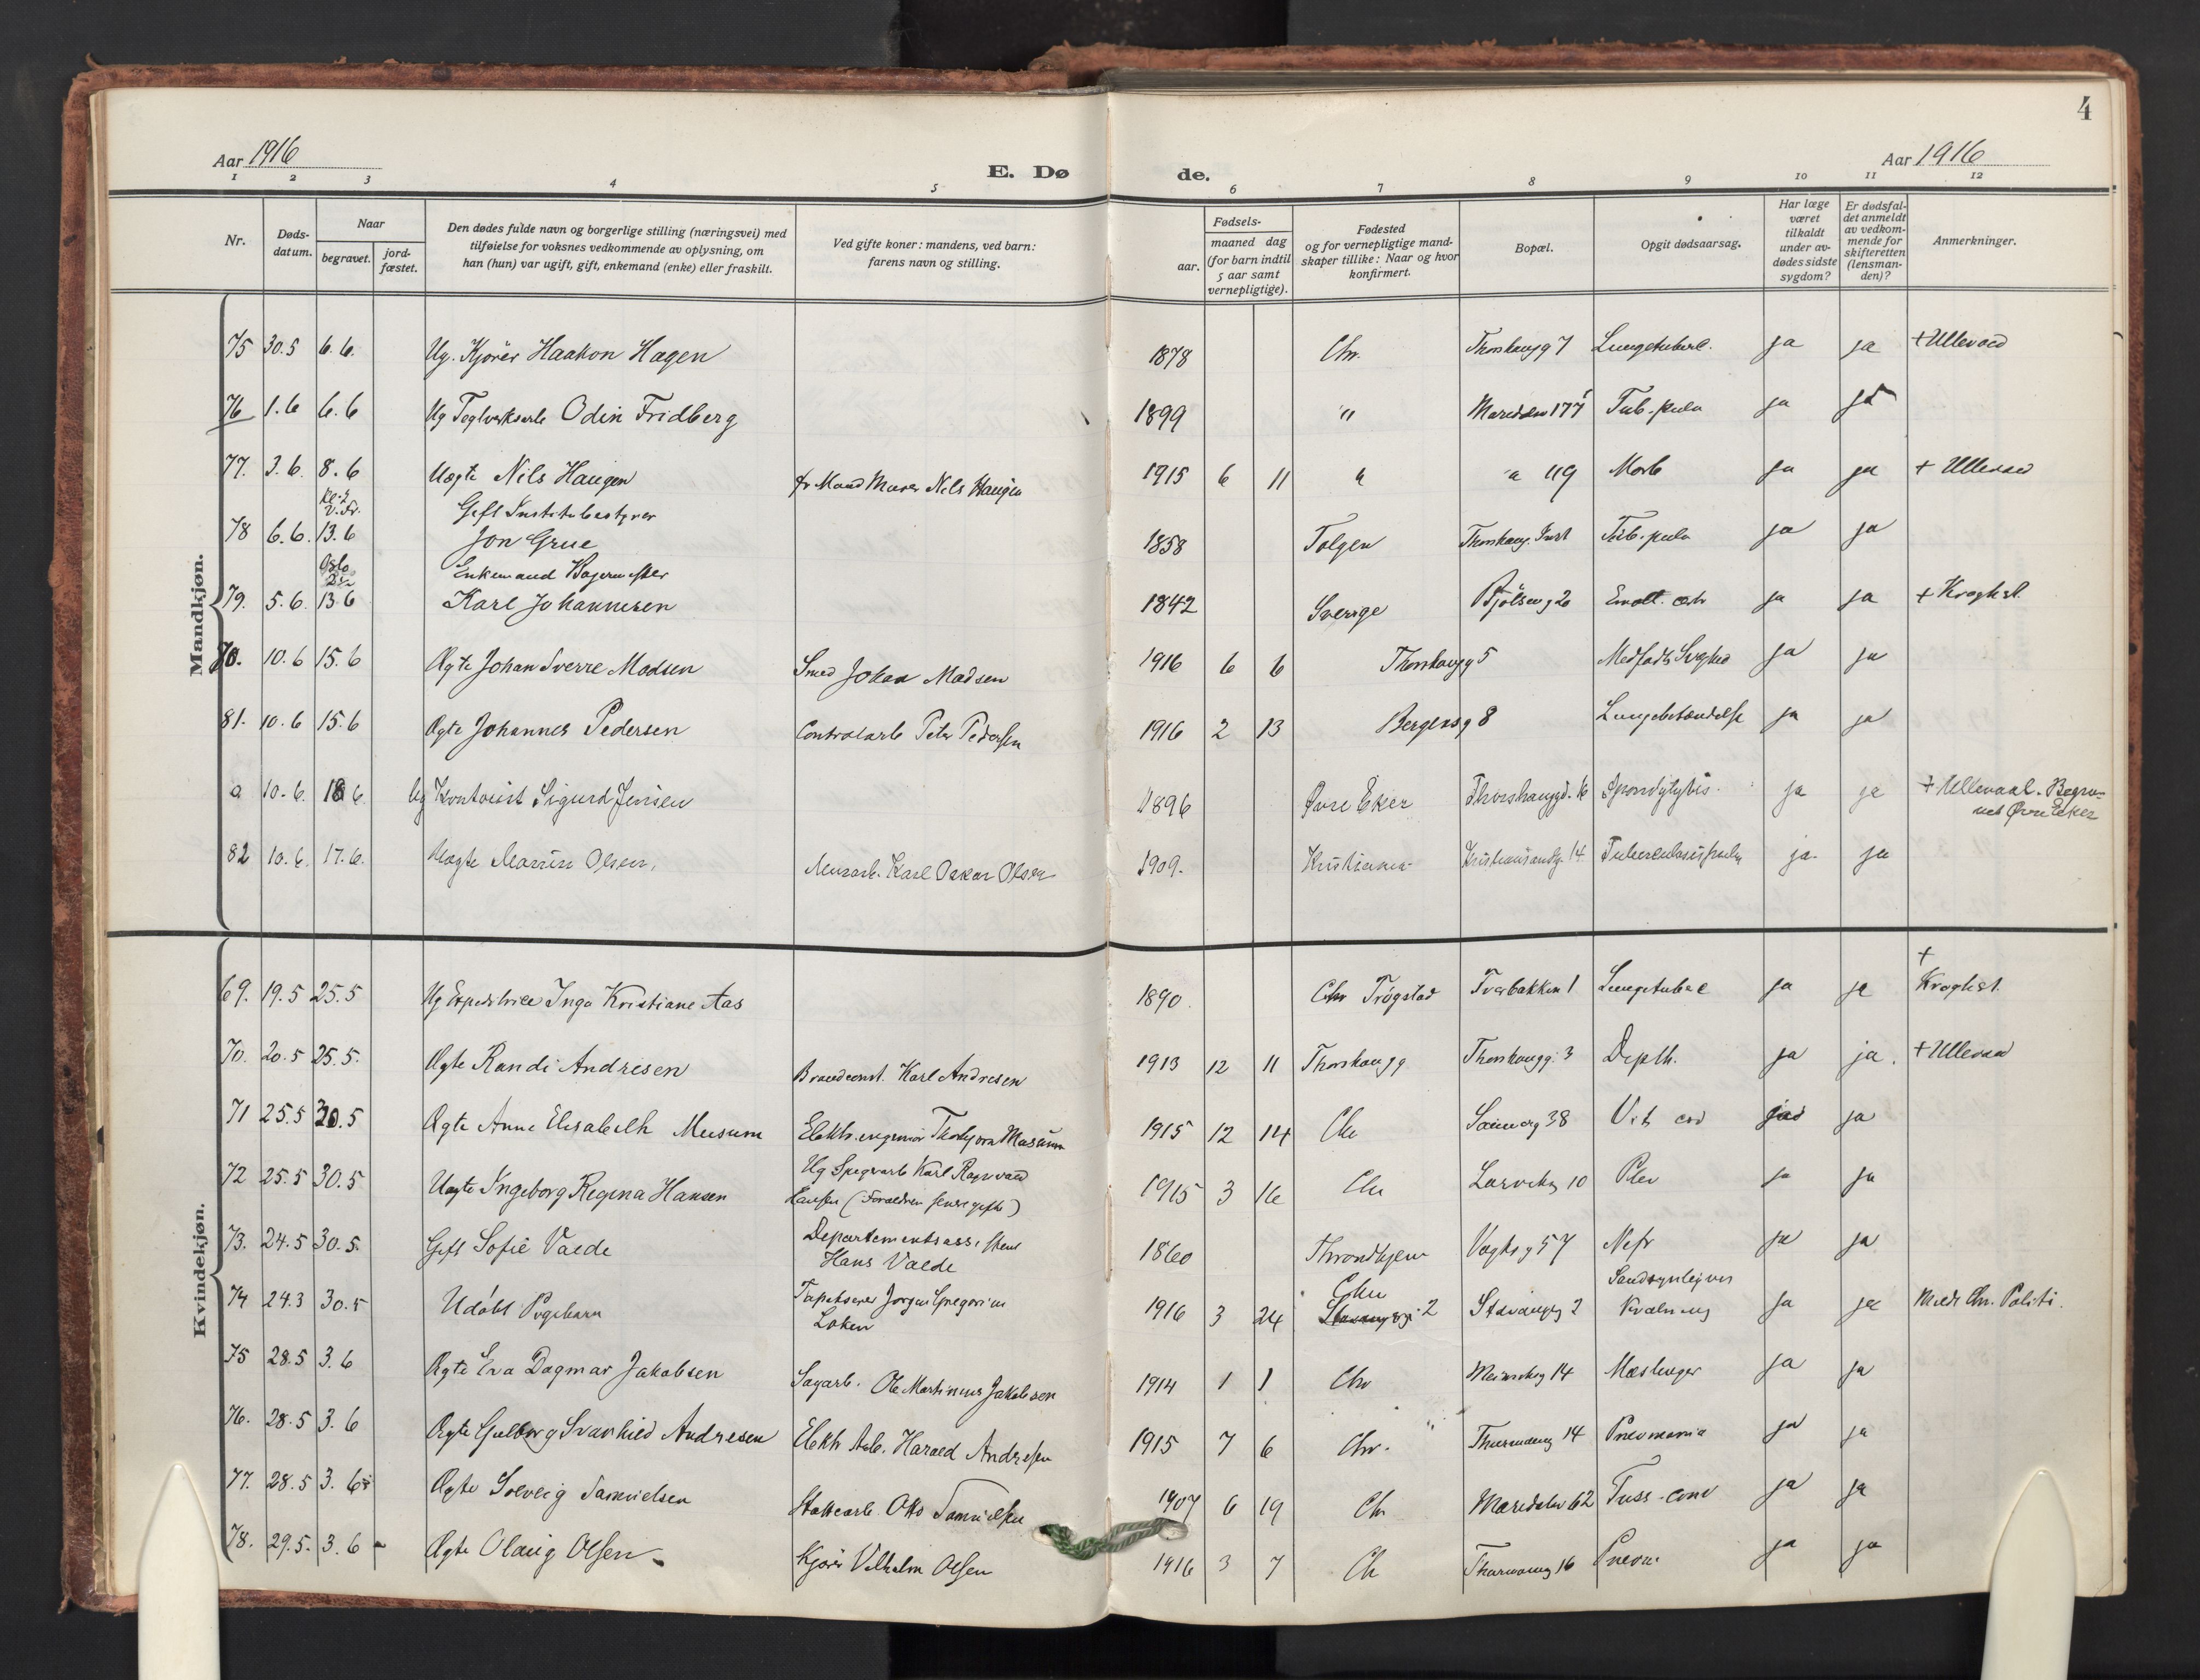 4
Aar 1916
E. Dø de.
Aar 1916
1 2 3 4 5 6 7 8 9 10 11 12
Nr.
Døds-datum.
Naar
begravet.
jord-fæstet.
Den dødes fulde navn og borgerlige stilling (næringsvei) med
tilføielse for voksnes vedkommende av oplysning, om
han (hun) var ugift, gift, enkemand (enke) eller fraskilt.
Ved gifte koner: mandens, ved barn:
farens navn og stilling.
Fødsels-
aar.
maaned dag
(for barn indtil
5 aar samt
vernepligtige).
Fødested
og for vernepligtige mand-
skaper tillike: Naar og hvor
konfirmert.
Bopæl.
Opgit dødsaarsag.
Har læge
været
tilkaldt
under av-
dødes sidste
sygdom?
Er dødsfal-
det anmeldt
av vedkom-
mende for
skifteretten
(lensman-
den)?
Anmerkninger.
Mandkjøn.
75 30.5 6.6. Ug. Kjörer Haakon Hagen 1878 Chr. Thorshaugg 7 Lungetuberc. ja ja + Ullevaal
76 1.6 6.6 Ug Teglverksarb Odin Fridberg 1899 " Maridalsv 177 Tub. pulm ja ja
77. 3.6. 8.6 Uægte Nils Haugen fr. Mand Murer Nils Haugen 1915 6 11 " " 119 Morb ja ja + Ullevaal
Kl. 2
V. Fr.
Gift Institutbestyrer
78 6.6. 13.6 Jon Grue 1858 Tolgen Thorshaug. Inst Tub. pulm ja ja
Oslo
Enkemand Bagermester
79. 5.6. 13.6 Karl Johannesen 1842 Sverige Bjölseng 26 ja ja + Kroghst.
70. 10.6 15.6 Ægte Johan Sverre Madsen Smed Johan Madsen 1916 6 6 Thorshaugg 5 Medfødt Svaghed ja ja
81. 10.6 15.6 Ægte Johannes Pedersen Peter Pedersen 1916 2 13 Bergensg 8 Lungebetændelse ja ja
a 10.6. 18 6. Ug Kontorist Sigurd Jensen 1896 Øvre Eker Thorshauggd. 16 Spondylytis. ja ja + Ullevaal. Begra-
vet Øvre Eker
82 10.6. 17.6. Uægte Olsen, Murarb. Karl Oskar Olsen 1909. Kristiania Kristiansandsg. 14 Tuberculosis pulm ja. ja
Kvindekjøn.
69. 19.5 25.5 Ug Expeditrice Inga Kristiane Aas 1890. Chr Trögstad Tverbakken 1 Lungetuberc ja ja + Kroghst.
70. 20.5 25.5. Ægte Randi Andresen Brandconst. Karl Andresen 1913 12 11 Thorshaugg Thorshaugg. 3 Depth. ja ja. + Ullevaal
71 25.5 30.5 Ægte Anne Elisabeth Musum Elektr. engeniör Thorbjörn Musum 1915 12 14 Chr 38 Vit. cor ja ja
Ug Karl Ragnvald
72 25.5 30.5 Uægte Ingeborg Regina Hansen Hansen (Forældrene senere gifte) 1915 3 16 Chr Larviksg 10 ja ja
Departementsassistent
73. 24.5 30.5. Gift Sofie Vaede Hans Vaede 1860 Throndhjem Vogtsg 57 Nefr ja ja
Tapetserer Jörgen Gregorius Chr Sandsynligvis
74 24.3 30.5 Udöbt Pigebarn Loken 1916 3 24 Stavangerg. 2 Stavangrg 2 Kvælning ja ja Meldt Chr. Politi.
75 28.5 3.6 Ægte Eva Dagmar Jakobsen Sagarb. Ole Martinius Jakobsen 1914 1 1 Chr 14 Mæslinger ja ja
76. 28.5 3.6 Ægte Gulborg Svanhild Andresen Elektr Arb. Harald Andresen 1915 7 6 Chr. 14 Pneumonia ja ja
77. 28.5 3.6 Ægte Solveig Samuelsen Otto Samuelsen 1907 6 19 Chr Maridalsv 62 Tuss. conv ja ja
78. 29.5. 3.6 Ægte Olaug Olsen Kjörer Vilhelm Olsen 1916 3 7 Ch 16 Pneum. ja ja